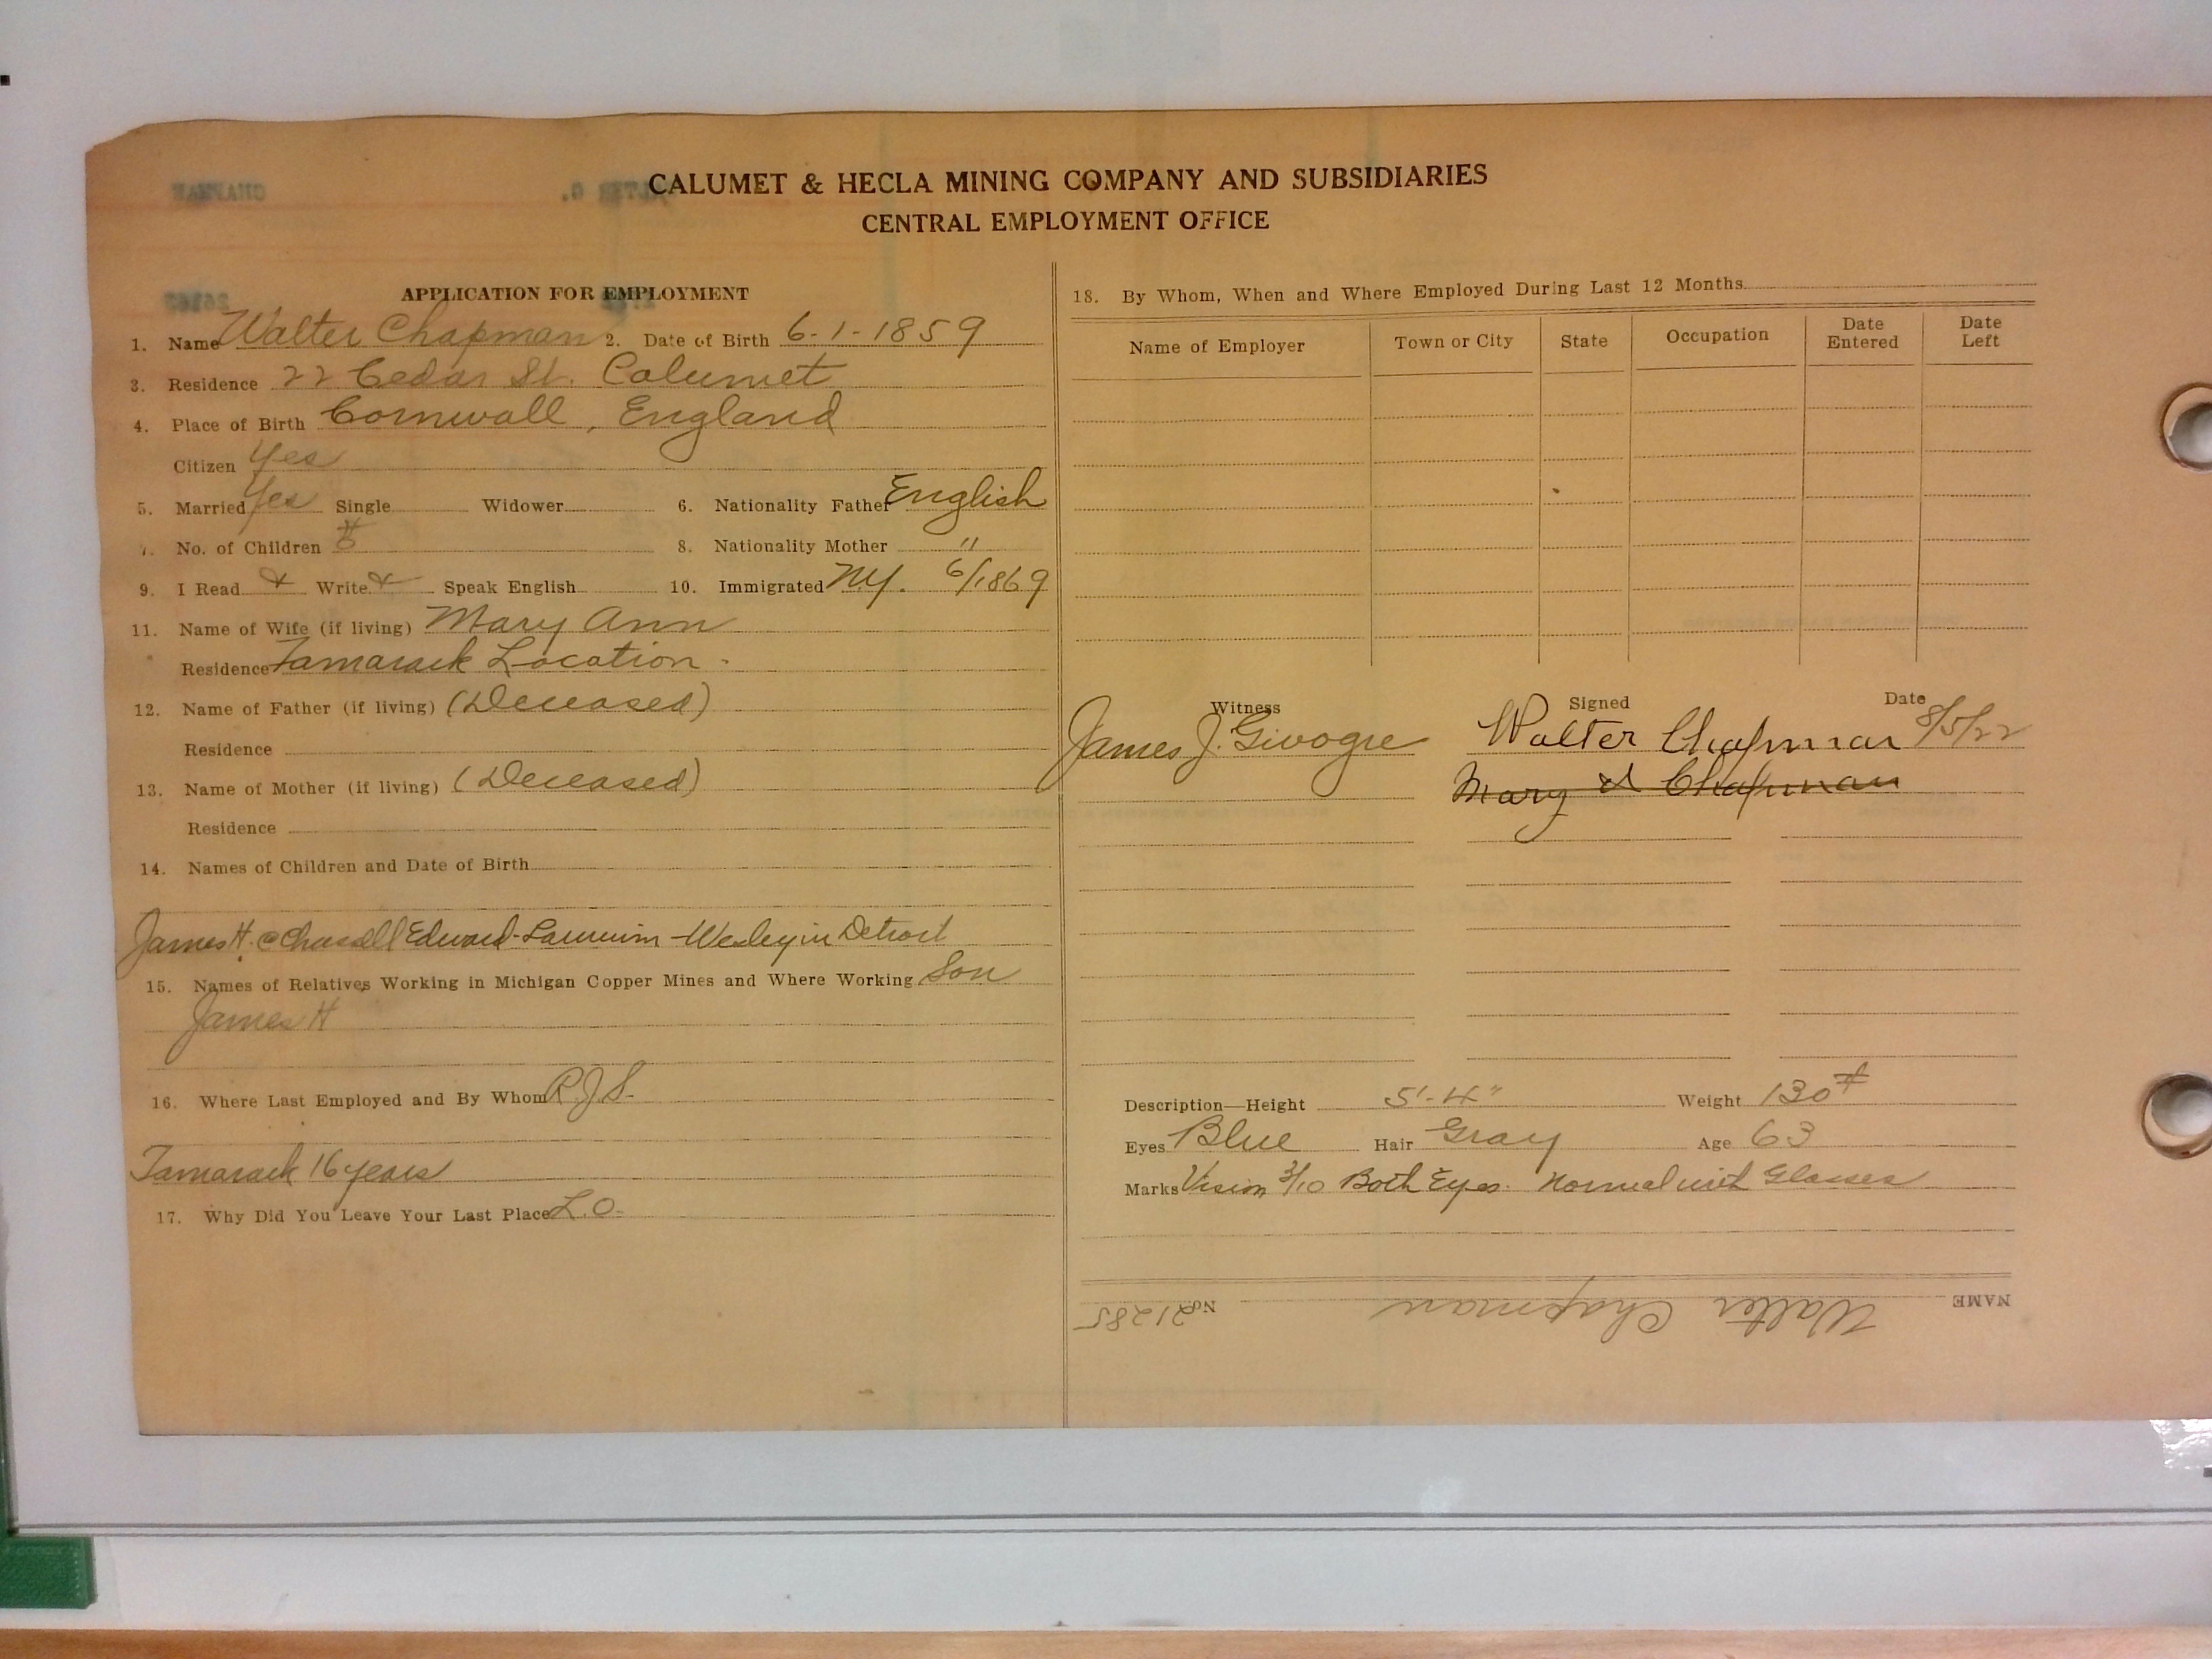 CALUMET & HECLA MINING COMPANY AND SUBSIDIARIES
CENTRAL EMPLOYMENT OFFICE
APPLICATION FOR EMPLOYMENT
1. Name Walter Chapman 2. Date of Birth 6-1-1859
3. Residence 22 Cedar St. Calumet
4. Place of Birth Cornwall, England
Citizen Yes
5. Married Yes Single Widower 6. Nationality Father English
7. No. of Children 8. Nationality Mother "
9. I Read Write Speak English 10. Immigrated N.Y. 6/1869
11. Name of Wife (if living) Mary Ann
Residence Tamarack Location
12. Name of Father (if living) (Deceased)
Residence
13. Name of Mother (if living) (Deceased)
Residence
14. Names of Children and Date of Birth
James H. Edward - Wesley in Detroit
15. Names of Relatives Working in Michigan Copper Mines and Where Working Son
James H
16. Where Last Employed and By Whom R.J.S.
Tamarack 16 years
17. Why Did You Leave Your Last Place L.O.
18. By Whom, When and Where Employed During Last 12 Months
Name of Employer Town or City State Occupation Date Entered Date Left
Witness Signed Date
James J. Walter Chapman 8/5/22
Mary Chapman
Description—Height 5'-4" Weight 130#
Eyes Blue Hair Gray Age 63
Marks Vision 3/10 Both Eyes. Normal with Glasses
NAME Walter Chapman No. 21285